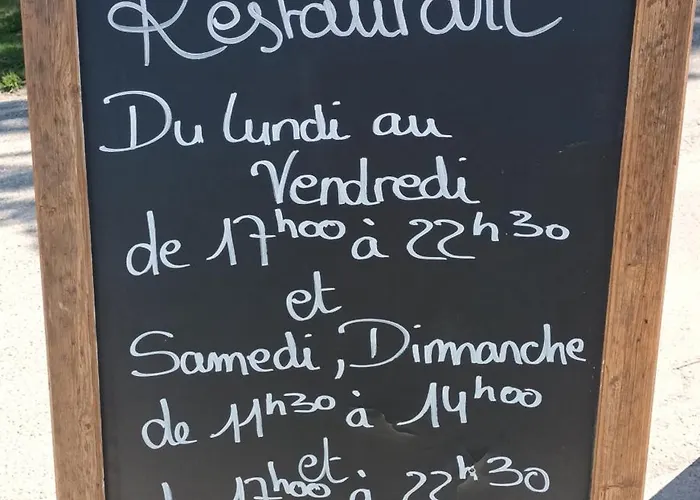 Restaurant
Du lundi au
Vendredi
de 17h00 à 22h30
et
Samedi, Dimanche
de 11h30 à 14h00
et
de 17h00 à 22h30